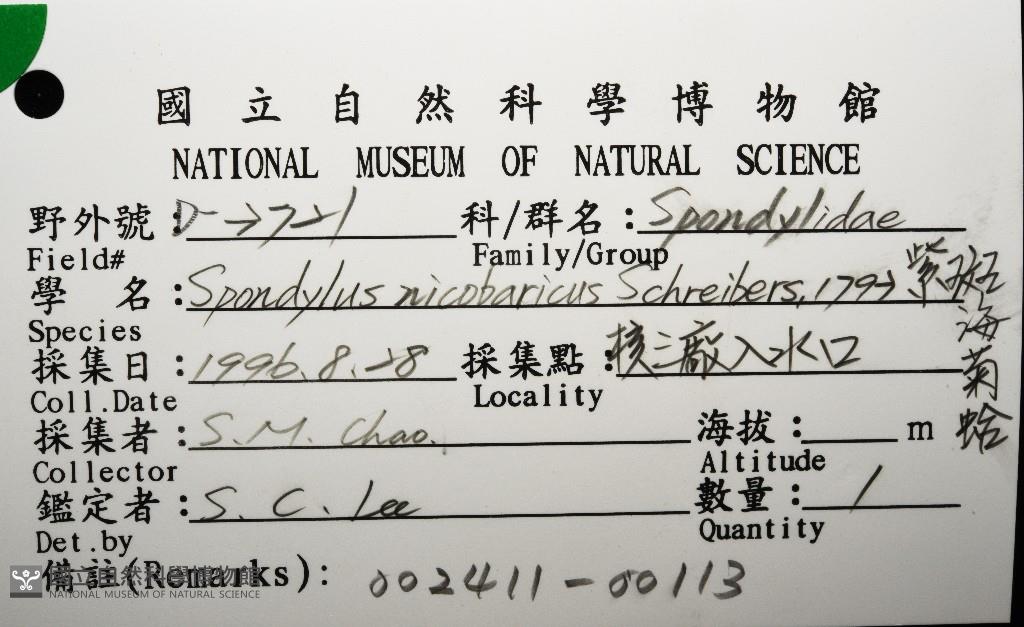 國立自然科學博物館
NATIONAL MUSEUM OF NATURAL SCIENCE
野外號：D-2721 科/群名：Spondylidae
Field# Family/Group
學名：Spondylus nicobaricus Schreibers, 1793 紫斑海菊蛤
Species
採集日：1996.8.28 採集點：核三廠入水口
Coll.Date Locality
採集者：S.M. Chao. 海拔：m
Collector Altitude
鑑定者：S. C. Lee 數量：1
Det.by Quantity
備註(Remarks)： 002411-00113
國立自然科學博物館
NATIONAL MUSEUM OF NATURAL SCIENCE